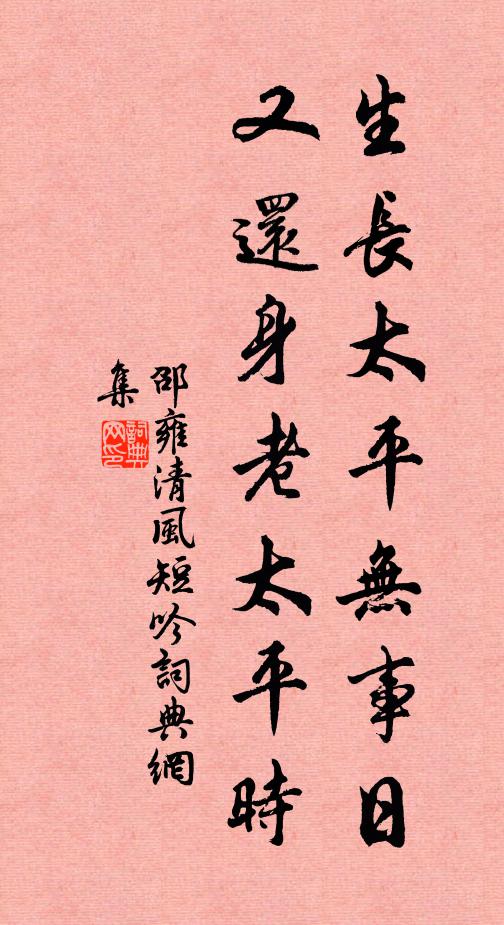 生長太平無事日
又還身老太平時
邵雍清風短吟詞典網
集
詞典
网印